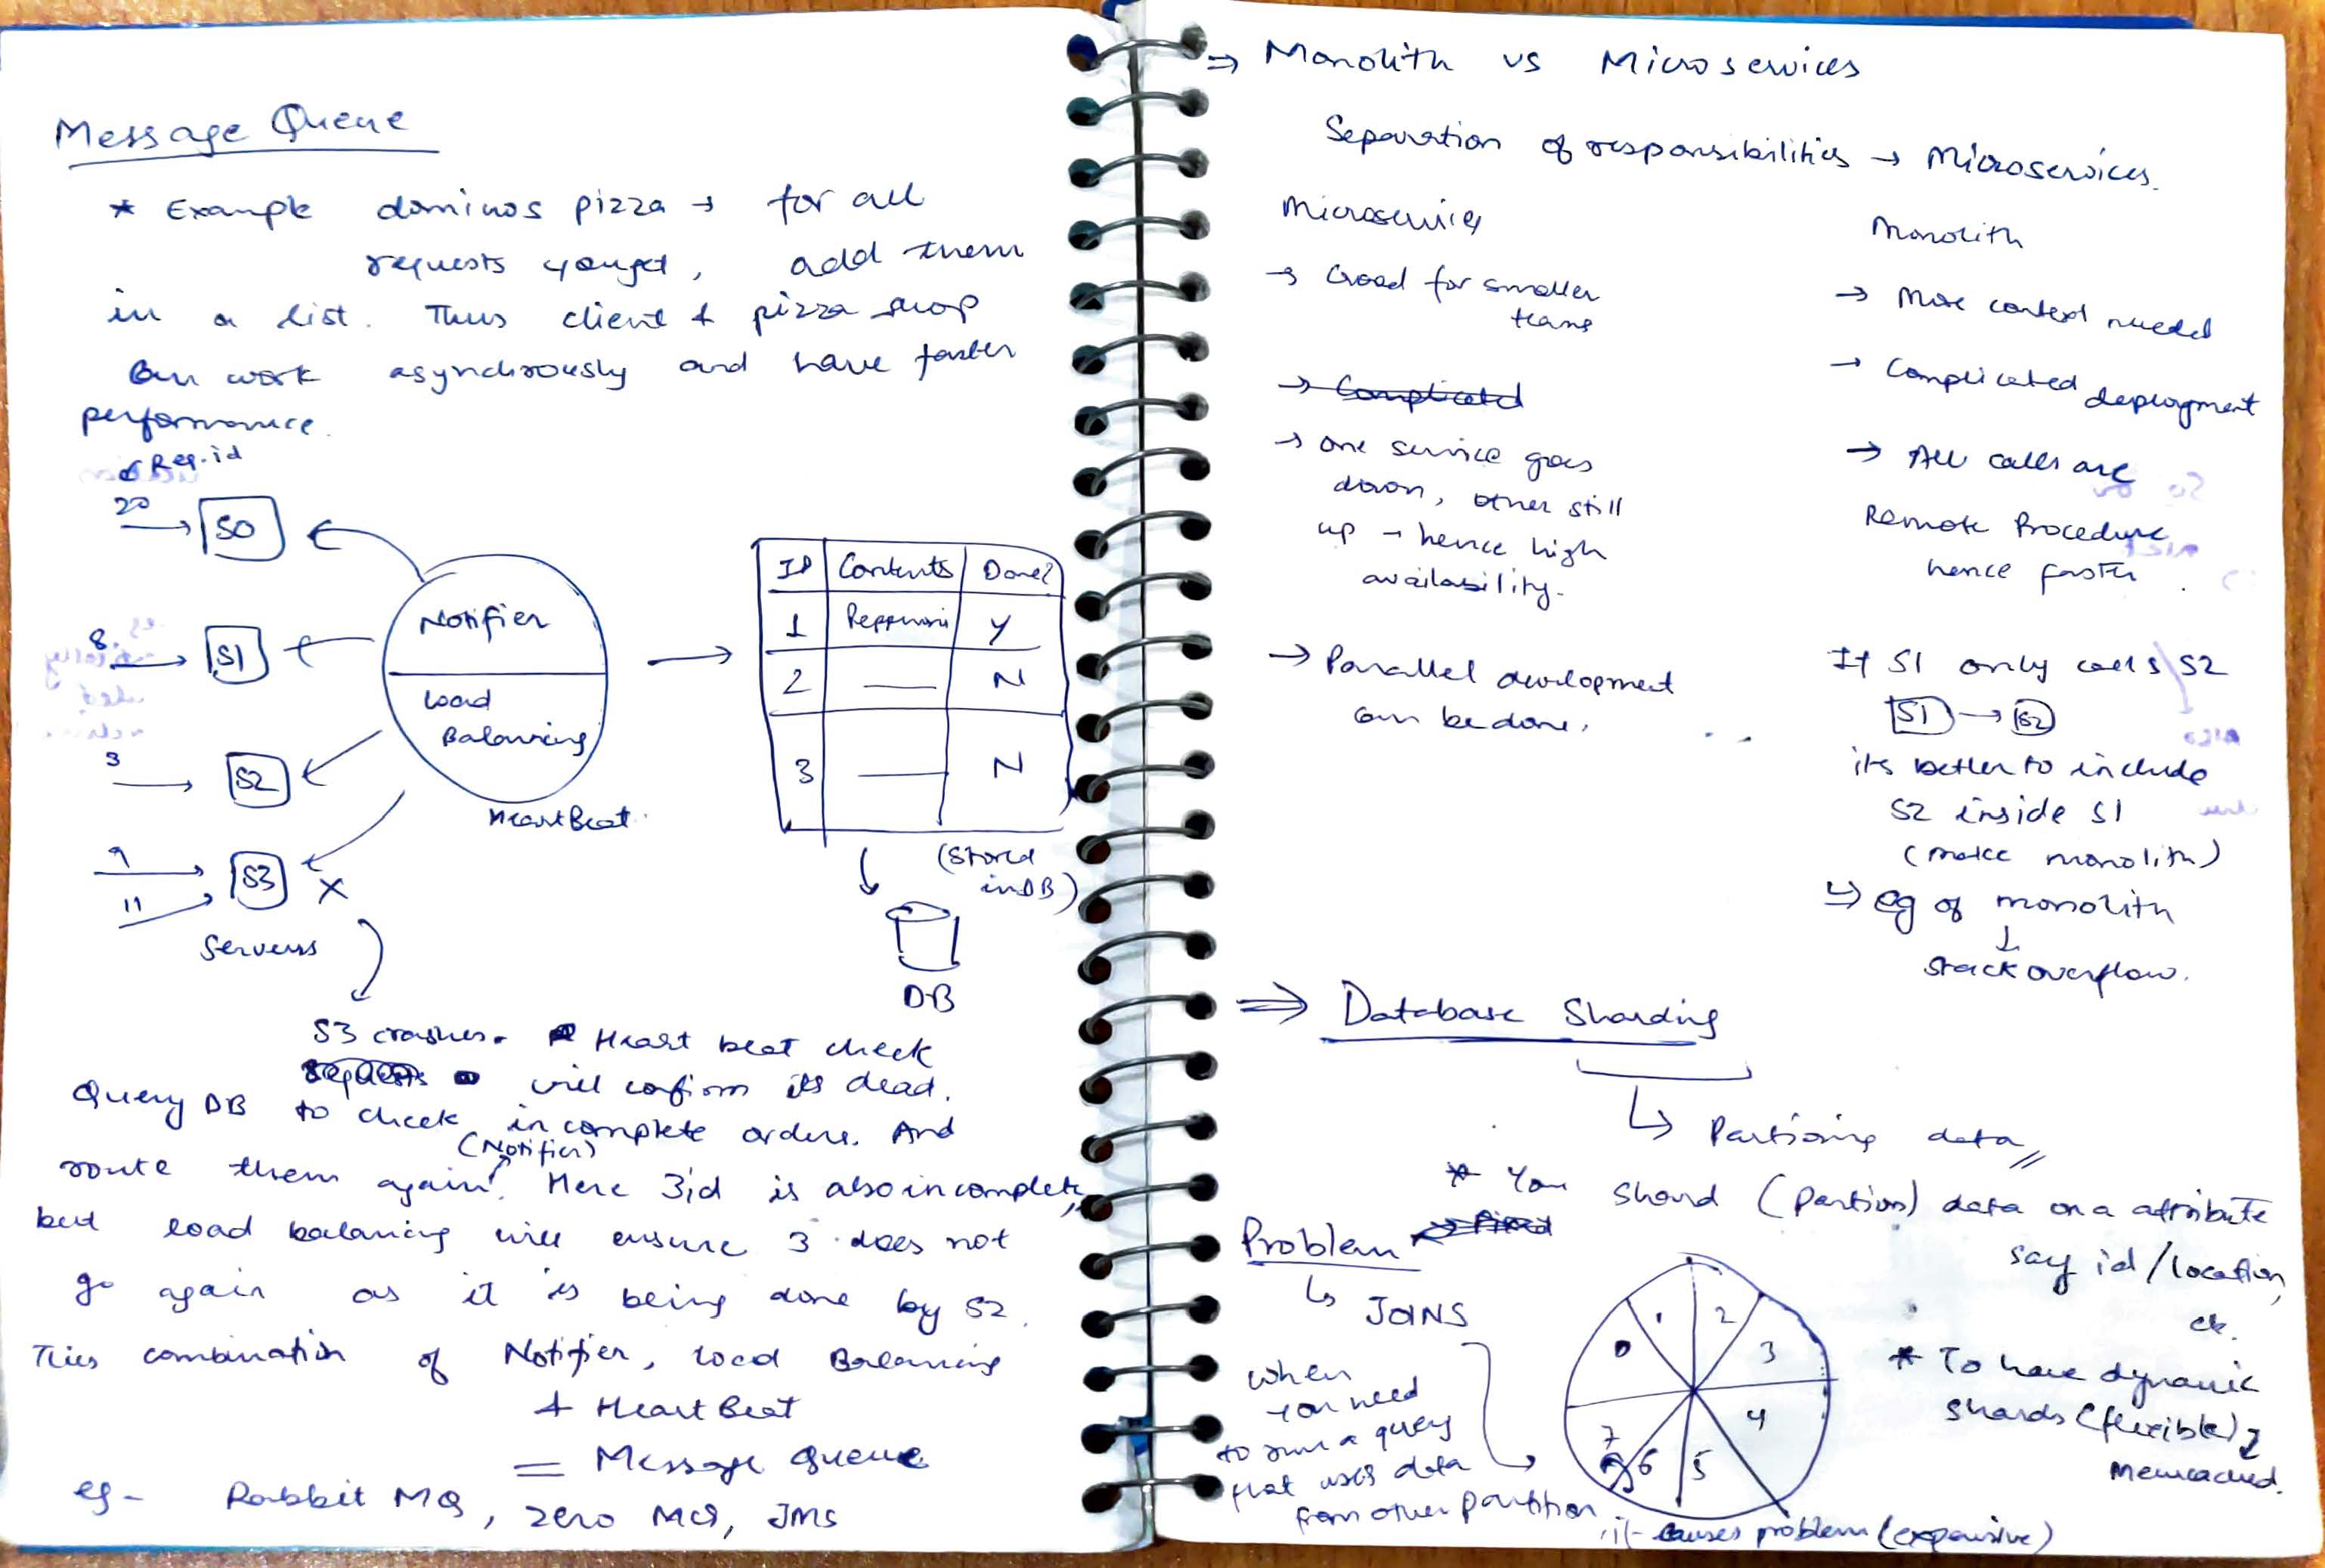 Message Queue
* Example dominos pizza → for all
requests you get, add them
in a list. Thus client & pizza shop
can work asynchrously and have faster
performance.
Req.id
20 → S0
8 → S1
3 → S2
9 → S3 X
11
Servers
Notifier
Load
Balancing
HeartBeat
ID Contents Done?
1 Pepperoni Y
2 N
3 N
(Stored
in DB)
DB
S3 crashes. Heart beat check
will confirm its dead.
Query DB to check incomplete orders. And
(Notifier)
route them again. Here 3id is also incomplete,
but load balancing will ensure 3 does not
go again as it is being done by S2.
This combination of Notifier, Load Balancing
+ Heart Beat
= Message Queue
eg - Rabbit MQ, zero MQ, JMS
⇒ Monolith vs Microservices
Separation of responsibilities → Microservices.
Microservices
→ Good for smaller
teams
→ Complicated
→ one service goes
down, other still
up → hence high
availability.
→ Parallel development
can be done.
Monolith
→ More context needed
→ Complicated deployment
→ All calls are
Remote Procedure
hence faster.
If S1 only calls S2
S1 → S2
its better to include
S2 inside S1
(make monolith)
↳ eg of monolith
↓
Stack overflow.
⇒ Database Sharding
↳ Partioning data
* You shard (partion) data on a attribute
say id/location,
etc.
Problem
↳ JOINS
when
you need
to run a query
that uses data
from other partition
it causes problem (expensive)
0 1 2 3 4 5 6 7
* To have dynamic
shards (flexible)
Memcached.